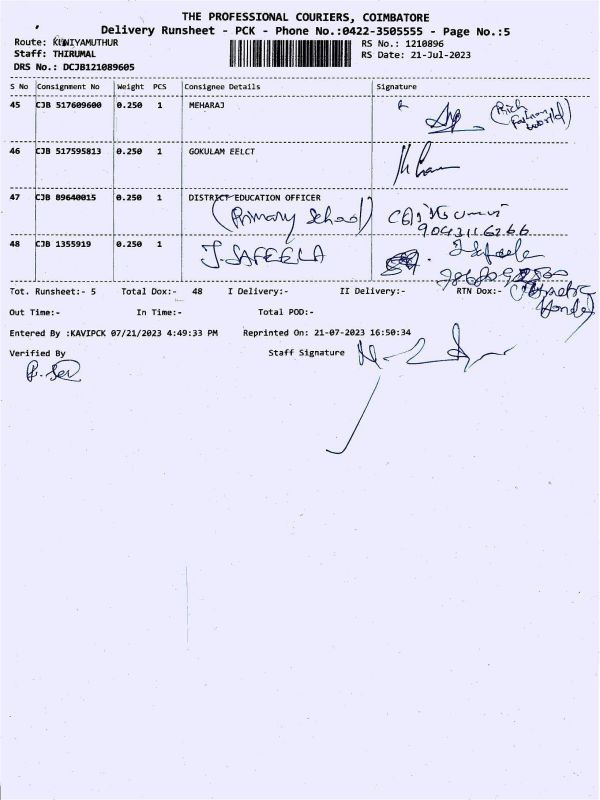 THE PROFESSIONAL COURIERS, COIMBATORE
Delivery Runsheet - PCK - Phone No.:0422-3505555 - Page No.:5
Route: KUNIYAMUTHUR
RS No.: 1210896
Staff: THIRUMAL
RS Date: 21-Jul-2023
DRS No.: DCJB121089605
S No Consignment No Weight PCS Consignee Details Signature
45 CJB 517609600 0.250 1 MEHARAJ
(Rich Fashion World)
46 CJB 517595813 0.250 1 GOKULAM EELCT
47 CJB 89640015 0.250 1 DISTRICT EDUCATION OFFICER
(Primary School)
9043116266
48 CJB 1355919 0.250 1 J.SAFEELA
Tot. Runsheet:- 5 Total Dox:- 48 I Delivery:- II Delivery:- RTN Dox:-
Out Time:- In Time:- Total POD:-
Entered By :KAVIPCK 07/21/2023 4:49:33 PM Reprinted On: 21-07-2023 16:50:34
Verified By Staff Signature